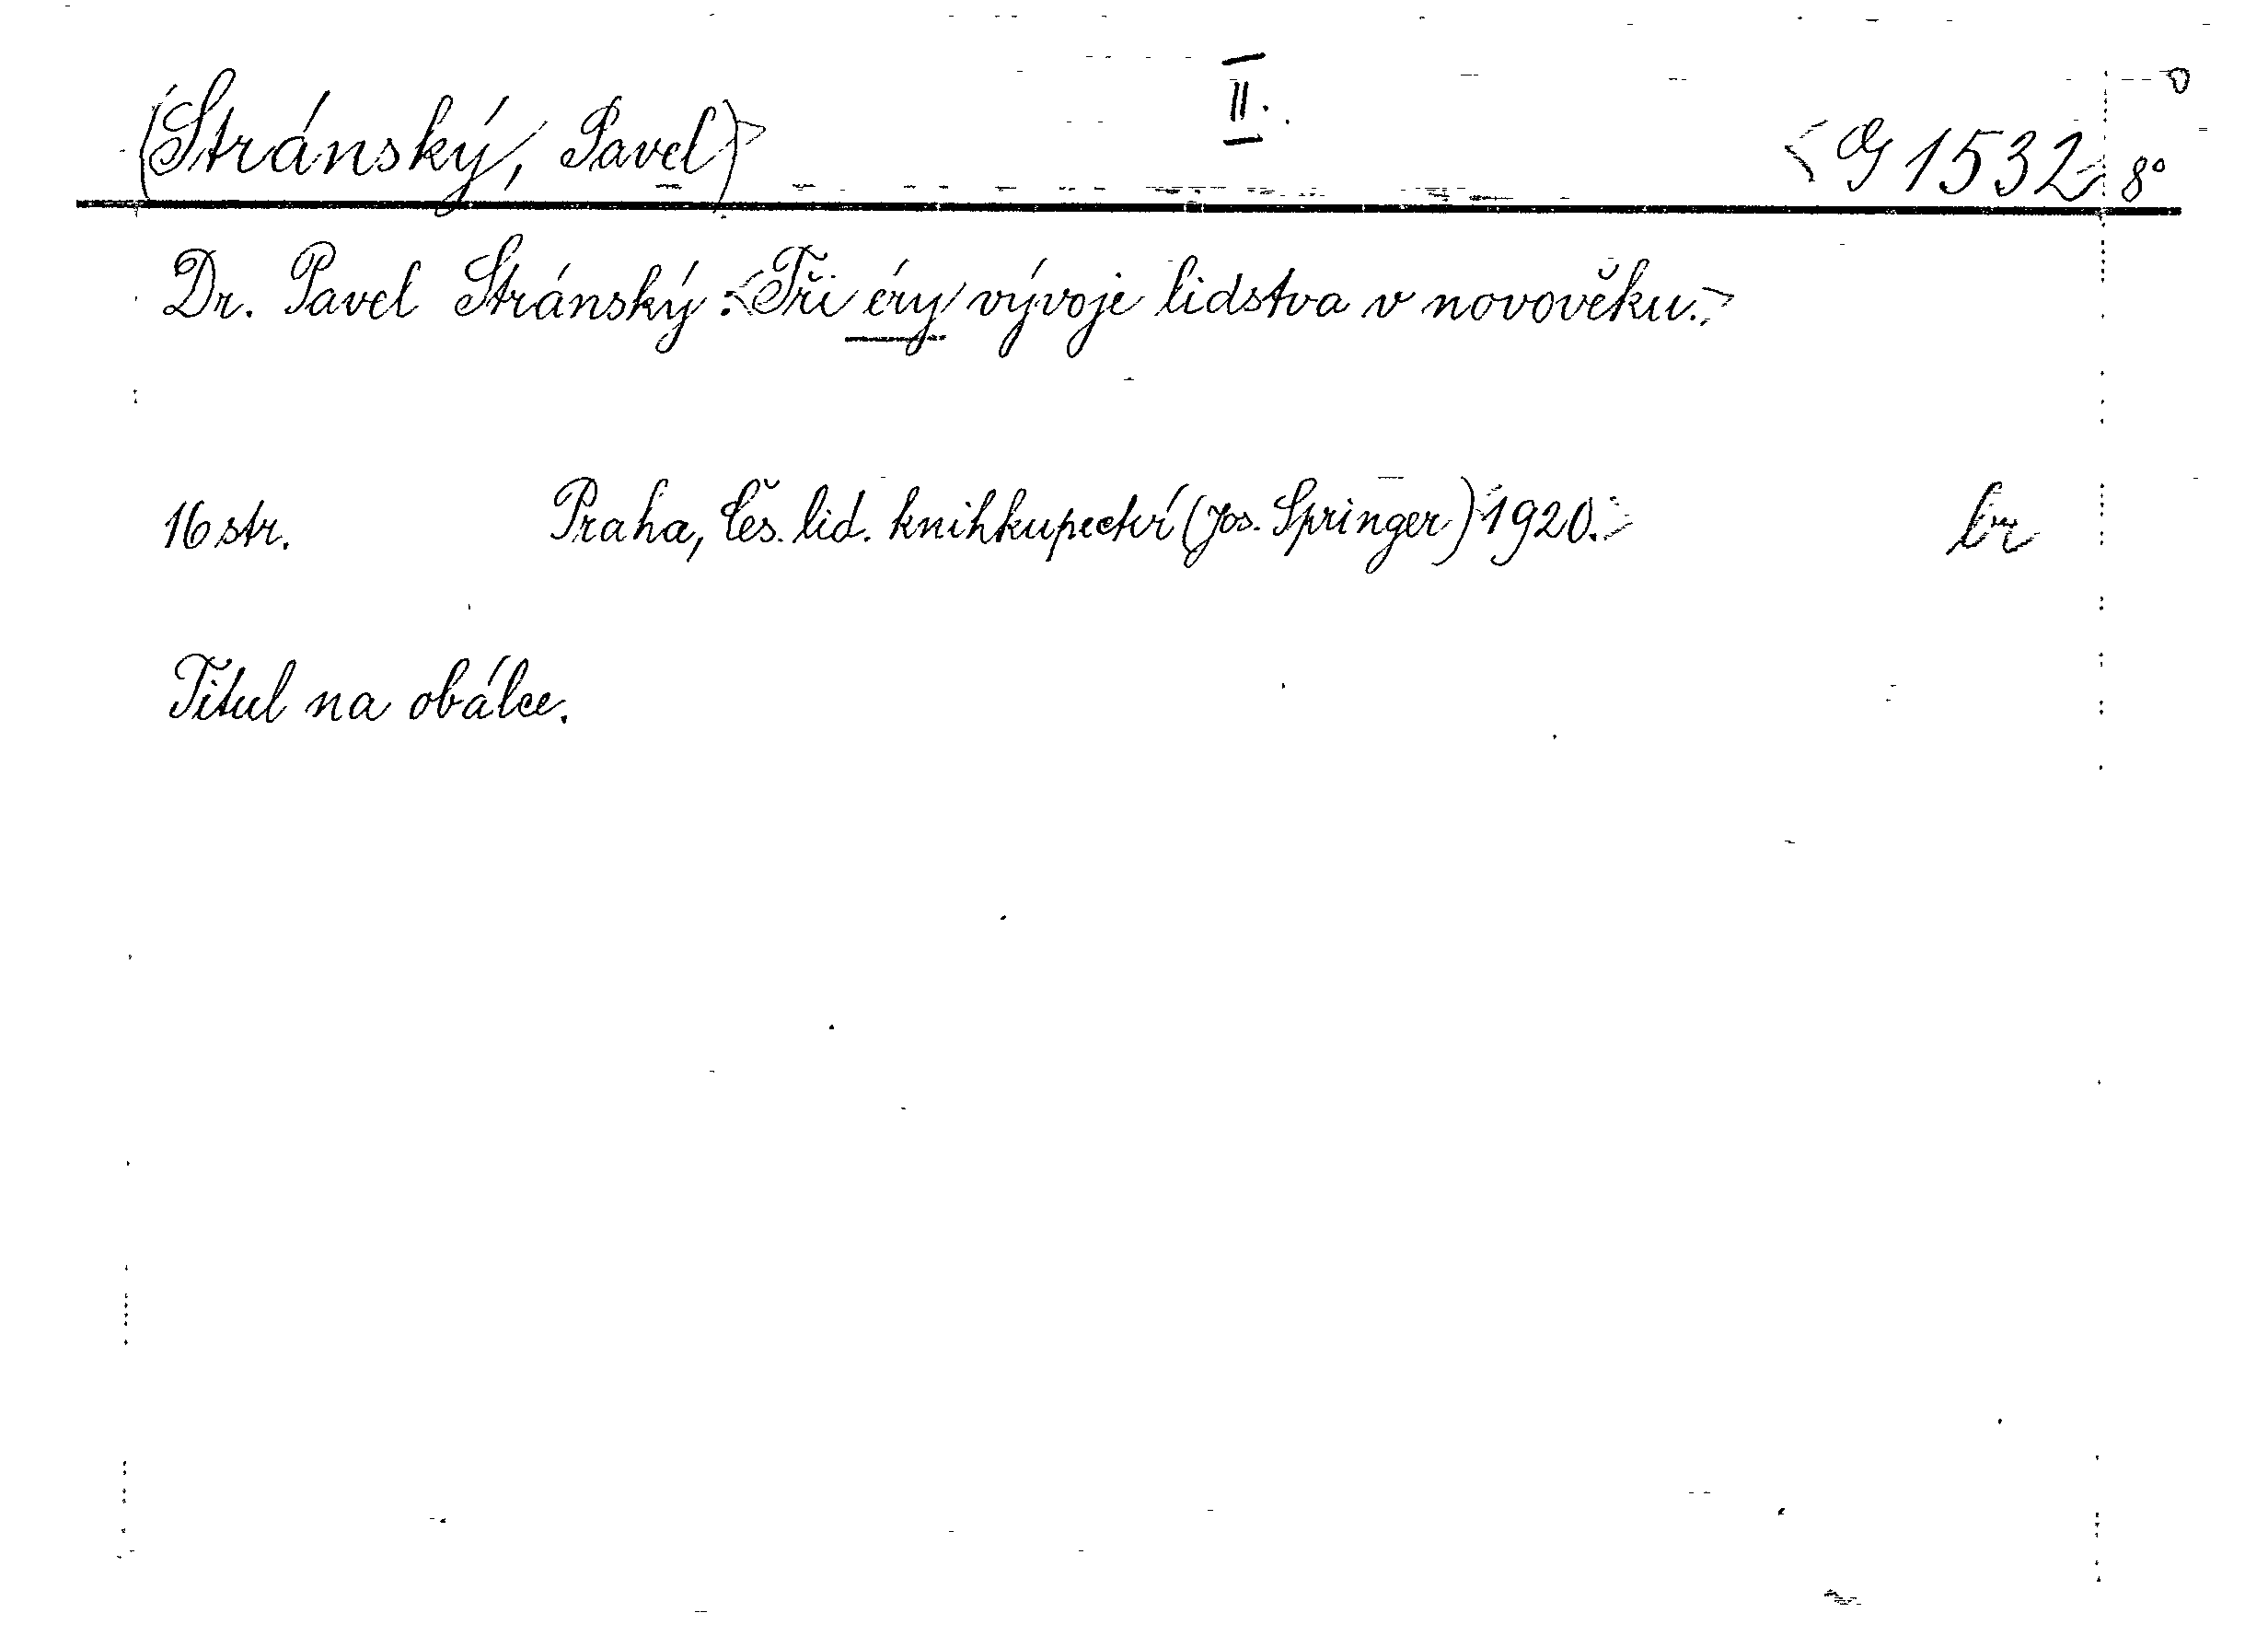 II.
(Stránský, Pavel) G 1532 8°
Dr. Pavel Stránský: Tři éry vývoje lidstva v novověku.
16 str. Praha, Čes. lid. knihkupectví (Jos. Springer) 1920. br
Titul na obálce.